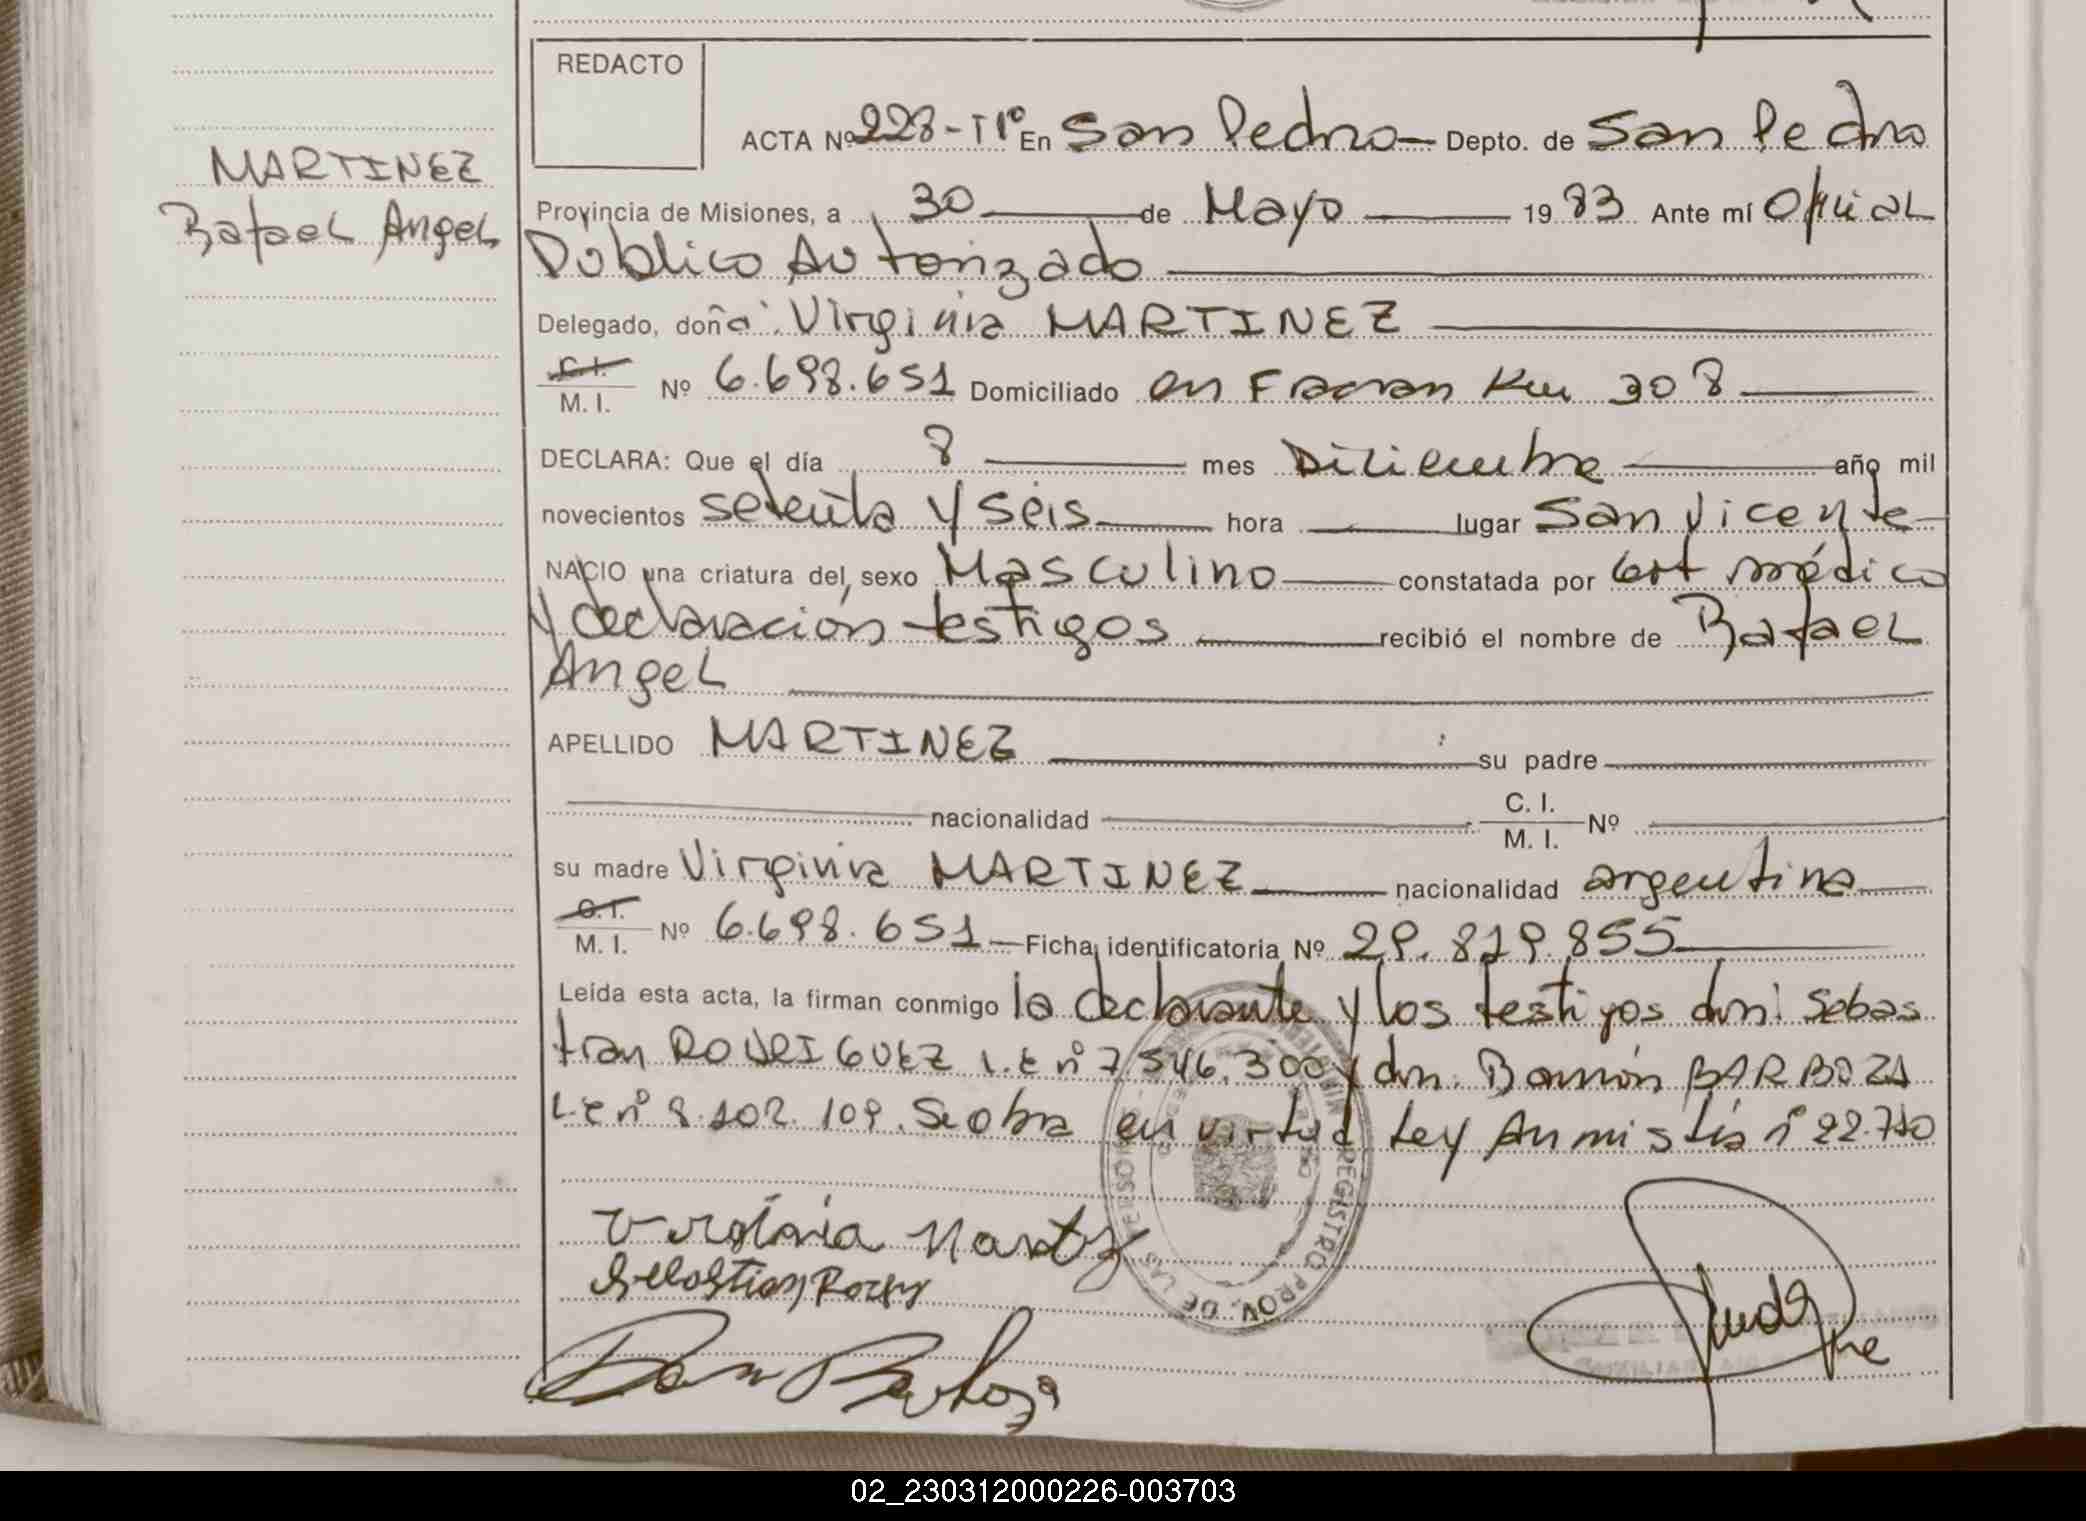 REDACTO
ACTA Nº 228-Tº1º En San Pedro Depto. de San Pedro
MARTINEZ
Rafael Angel
Provincia de Misiones, a 30 de Mayo 1983 Ante mí Oficial
Público Autorizado
Delegado, doña Virginia MARTINEZ
C. I.
M. I. Nº 6.698.651 Domiciliado en Fracran Km 308
DECLARA: Que el día 8 mes Diciembre año mil
novecientos setenta y seis hora lugar San Vicente
NACIO una criatura del sexo Masculino constatada por cert médico
y declaración testigos recibió el nombre de Rafael
Angel
APELLIDO MARTINEZ su padre
nacionalidad C. I. M. I. Nº
su madre Virginia MARTINEZ nacionalidad argentina
C. I.
M. I. Nº 6.698.651 Ficha identificatoria Nº 29.819.855
Leída esta acta, la firman conmigo la declarante y los testigos dn: Sebas
tian RODRIGUEZ L.E nº 7.546.300 y dn. Ramón BARBOZA
L.E nº 8.102.109. Se obra en virtud Ley Anmistía nº 22.710
Virginia Martz
Sebastian Rorgz
Ramon Barboza
REGISTRO PROV. DE LAS PERSONAS
02_230312000226-003703